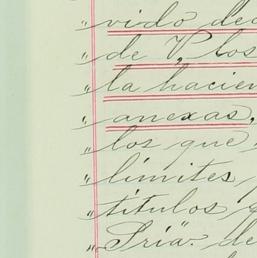 " vido ded
" de V, los
" la hacien
" anexas,
" los que
" límites y
" títulos q
" Sría. de